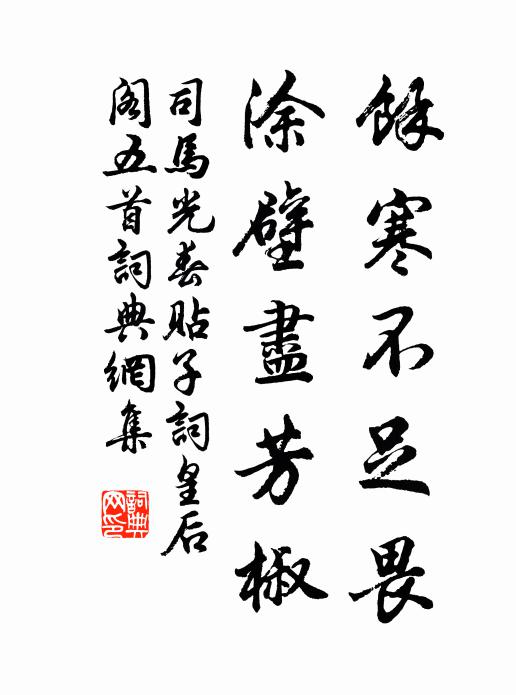 餘寒不足畏
涂壁盡芳椒
司馬光春貼子詞皇后
閣五首詞典網集
詞典网印